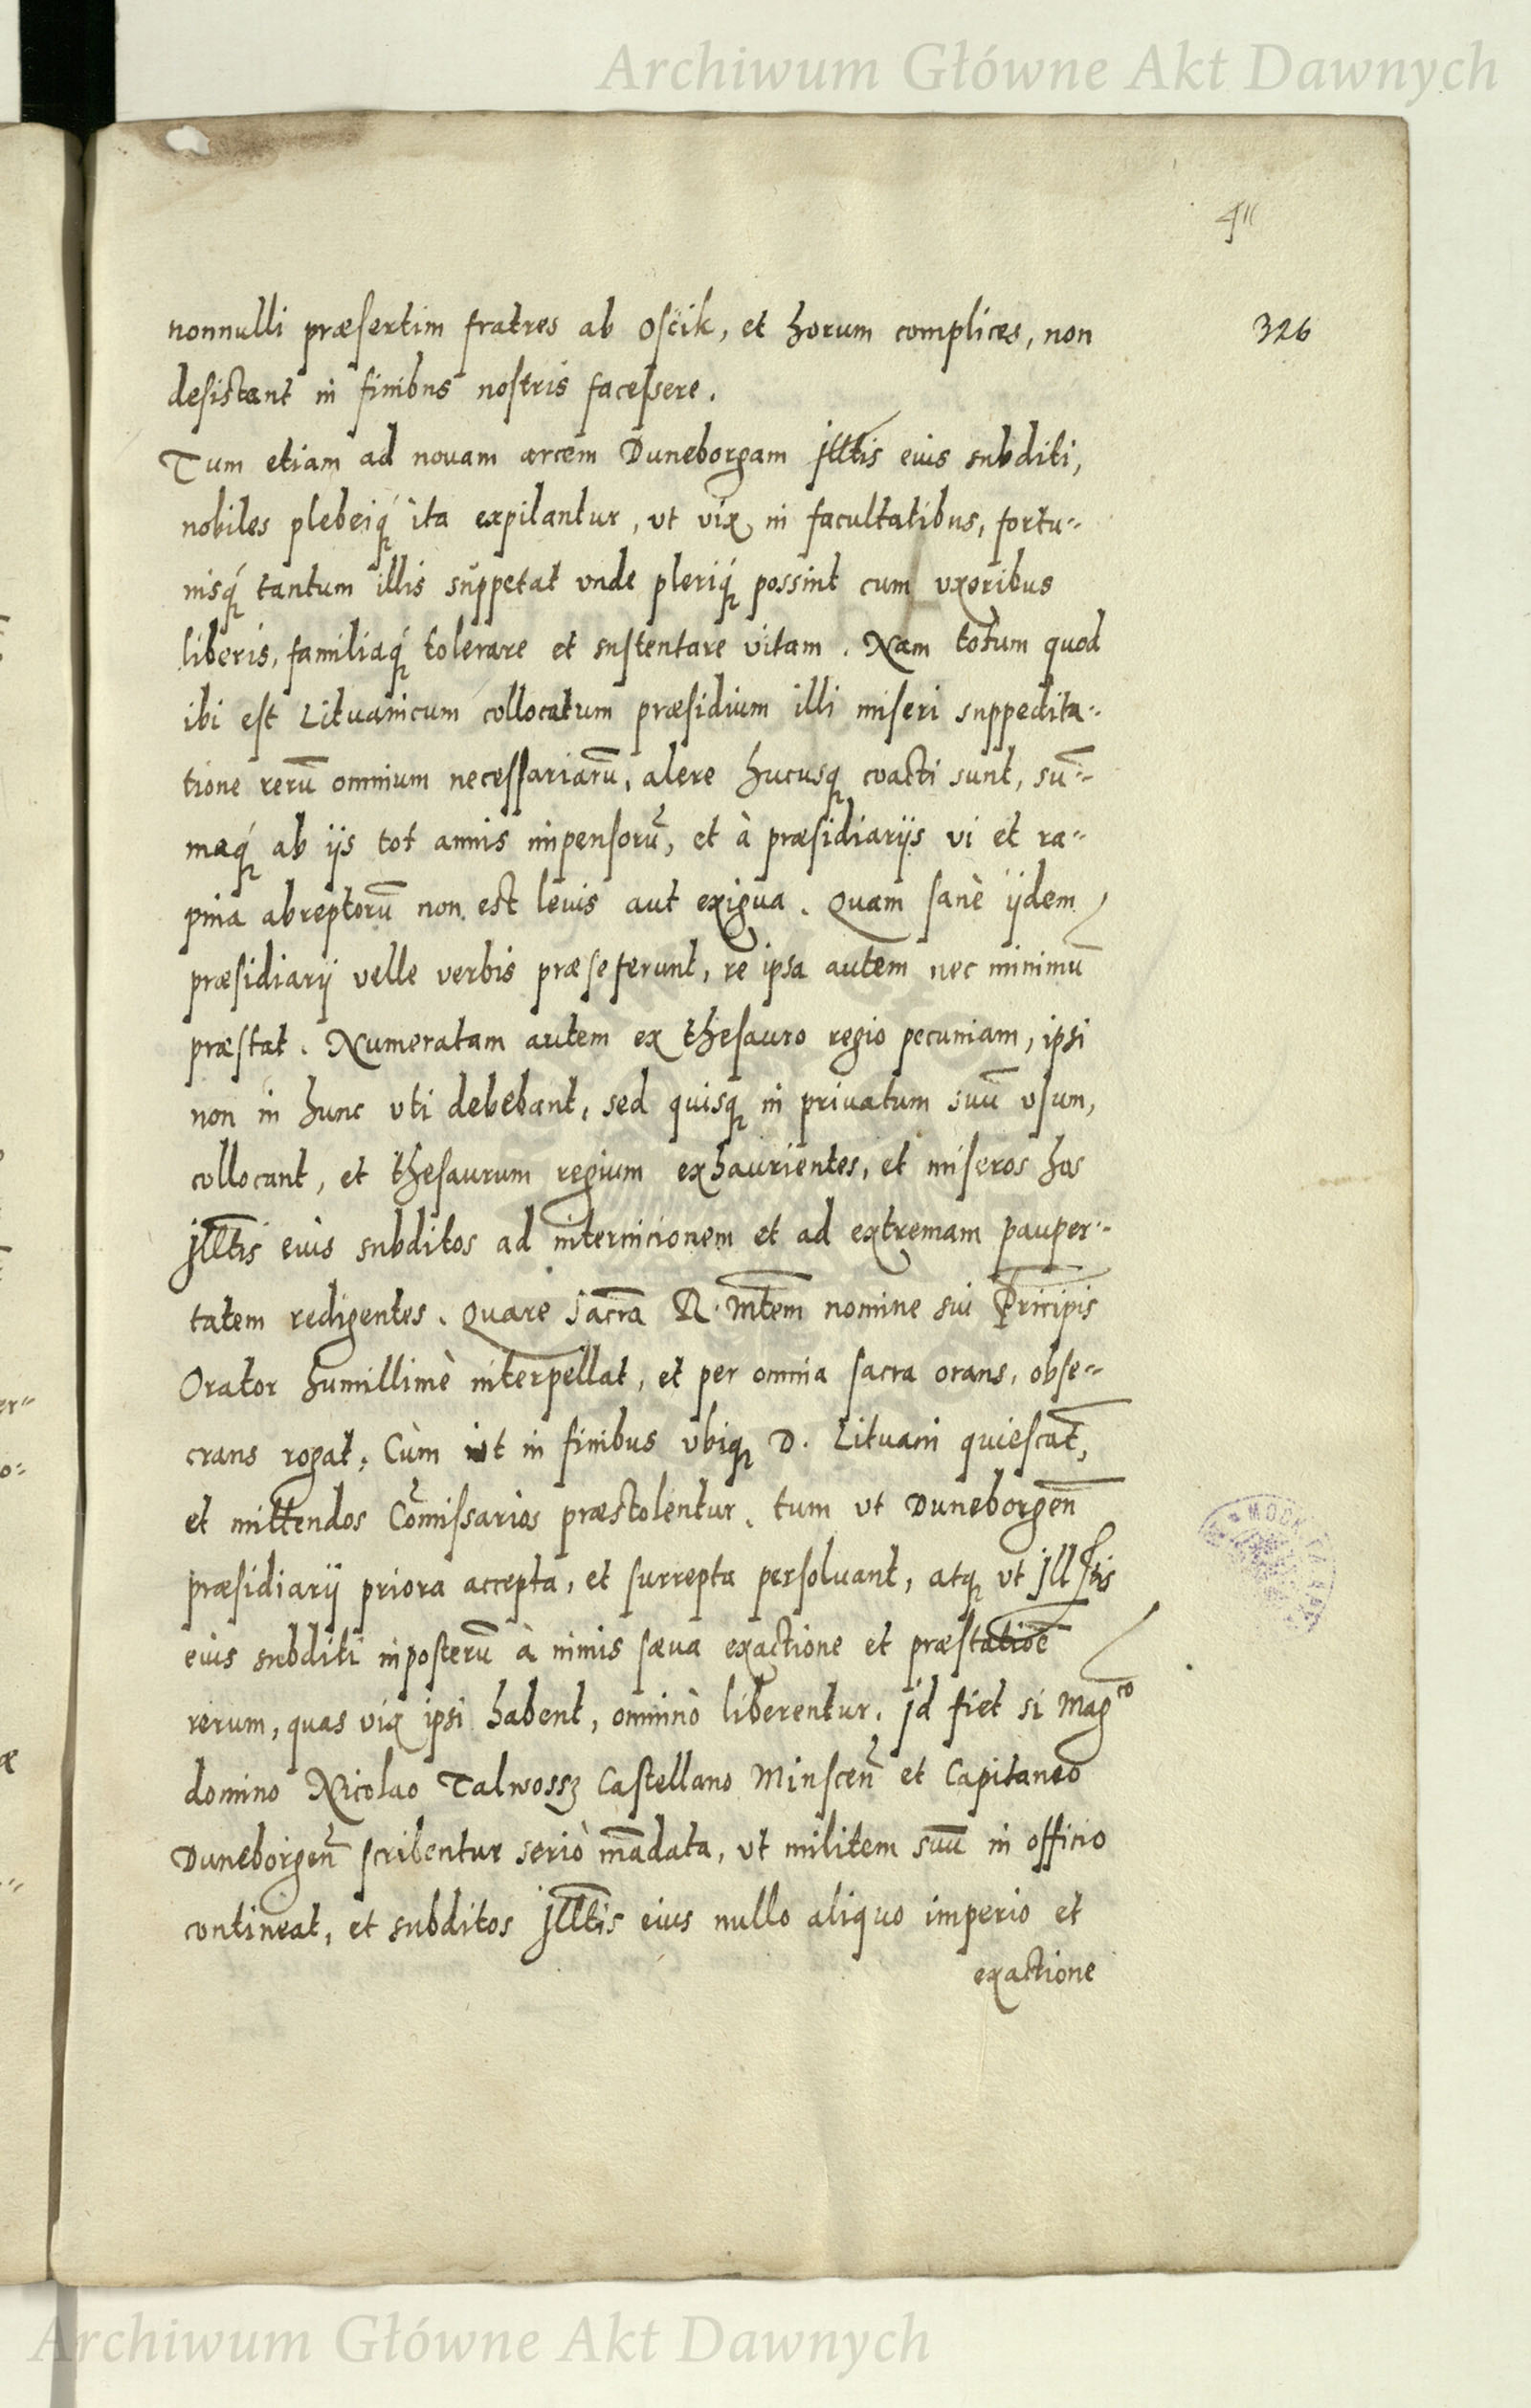 Archiwum Główne Akt Dawnych
411
326
nonnulli præsertim fratres ab Oscik, et horum complices, non
desistant in finibus nostris facessere.
Tum etiam ad nouam arcem Duneborgam Jlltis eius subditi,
nobiles plebeiq́ ita expilantur, vt vix in facultatibus, fortu=
nisq́ tantum illis suppetat vnde pleriq́ possint cum vxoribus
liberis, familiaq́ tolerare et sustentare vitam. Nam totum quod
ibi est Lituanicum collocatum præsidium illi miseri suppedita=
tione rerū omnium necessariarū, alere hucusq coacti sunt, sū=
maq́ ab ijs tot annis impensorū, et à præsidiarijs vi et ra=
pina abreptorū non est leuis aut exigua. Quam sanè ijdem
præsidiarij velle verbis præseferunt, re ipsa autem nec minimū
præstat. Numeratam autem ex thesauro regio pecuniam, ipsi
non in hunc vti debebant, sed quisq in priuatum suū vsum,
collocant, et thesaurum regium exhaurientes, et miseros hos
Jlltis eius subditos ad internicionem et ad extremam pauper=
tatem redigentes. Quare Sacrā R. Mtem nomine sui Pricipis
Orator humillimè interpellat, et per omnia sacra orans, obse=
crans rogat, Cùm vt in finibus vbiq D. Lituani quiescāt,
et mittendos Comissarios præstolentur, tum vt Duneborgen̄
præsidiarij priora accepta, et surrepta persoluant, atq vt Jlltis
eius subditi inposterū à nimis sæua exactione et præstatiōe
rerum, quas vix ipsi habent, omninò liberentur. Jd fiet si Magco
domino Nicolao Talwossz Castellano Minscen̄ et Capitaneo
Duneborgen̄ scribentur seriò mādata, vt militem suū in officio
contineat, et subditos Jlltis eius nullo aliquo imperio et
exactione
Archiwum Główne Akt Dawnych